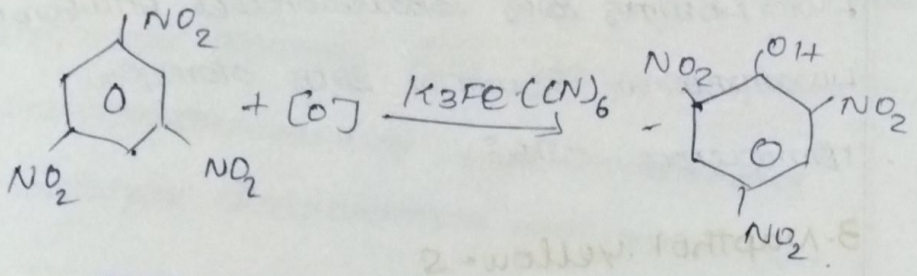 NO2
NO2
NO2
+ [O]
K3Fe(CN)6
OH
NO2
NO2
NO2